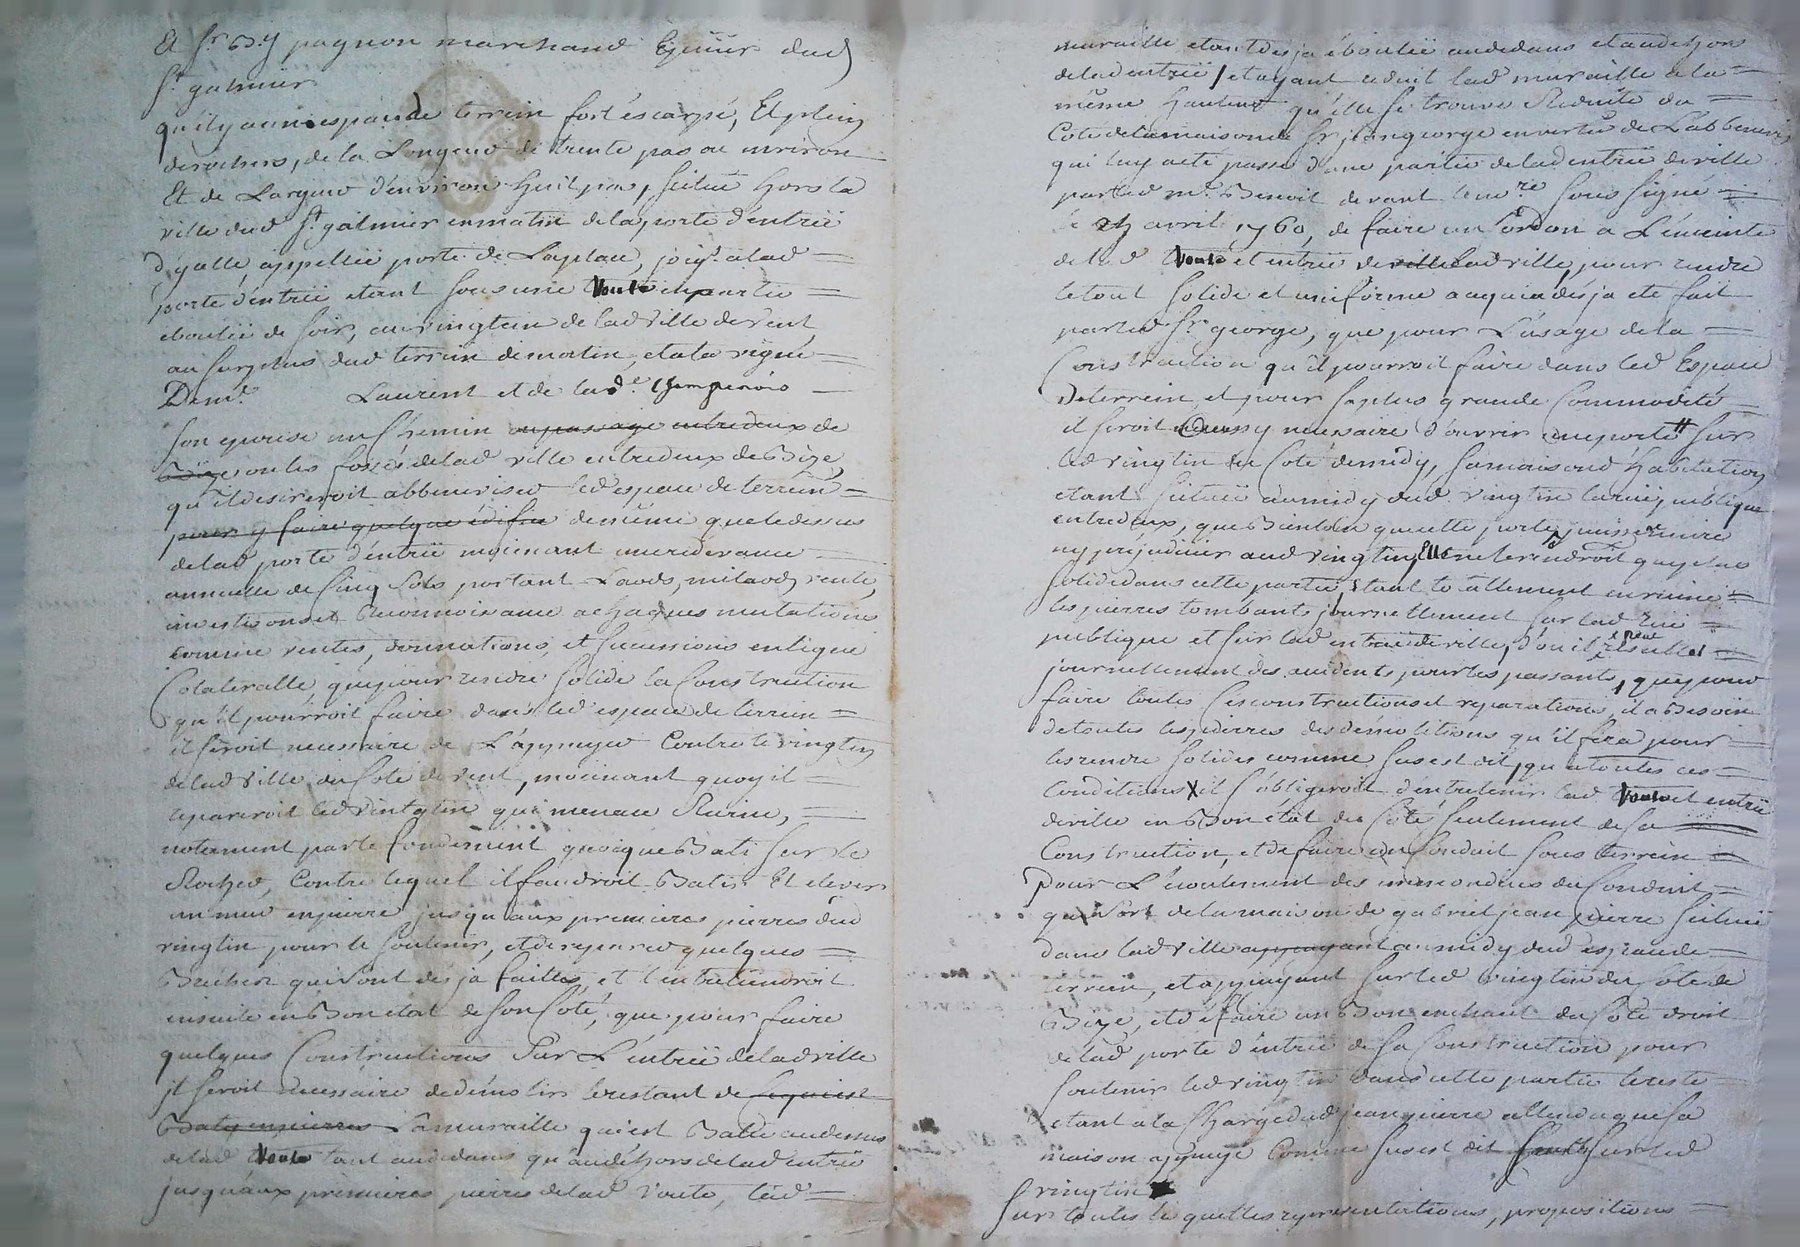 Et Sr B.y pagnon marchand Epicier dud
St galmier
qu'il y a un espace de terrein fort éscarpé, Et plein
de rochers, de la Longeur de trente pas ou environ
Et de Largeur d'environ huit pas, scitué hors la
ville dud St galmier en matin de la porte d'entrée
d'ycelle, appellée porte de Laplace, joigt a lad
porte d'entrée etant sous une Voute en partie
eboulée de soir, au vingtain de lad ville de vent,
au surplus dud terrein de matin, et a la vigne
De mr. Laurent et de lad.e
son epouse un Chemin ou passage entredeux de
Bize ou les fossés de lad ville entredeux de Bize,
qu'il desireroit abbeneviser led espace de terrein
pour y faire quelque édifice de meme que le dessus
de lad porte d'entrée moienant une redevance
annuelle de Cinq Sols portant Laods, milaods, vente,
investisons et Reconnoissance a chaques mutations
comme ventes, donnations, et successions en ligne
Colateralle, que pour rendre solide la Construction
qu'il pourroit faire dans led espace de terrein
il seroit necessaire de L'appuyer Contre le vingtin
de lad ville du Coté de vent, moienant quoy il
repareroit led vintgtin qui menace Ruine,
notament par le fondement quoique Bati sur le
Rocher, Contre lequel il faudroit Batir Et elever
un mur en pierre jusqu'aux premieres pierres dud
vingtin pour le soutenir, et de reparer quelques
Breches qui sont déja faittes, et l'entretiendroit
ensuite en Bon etat de son Coté, que pour faire
quelques Constructions Sur L'entrée de lad ville
il seroit necessaire de démolir le restant de ce qui est
Baty en pierres la muraille qui est Batie au dessus
de lad Voute tant au dedans qu'au dehors de lad entrée
jusqu'aux premieres pierres de lad voute, lad
muraille etant déja éboulée au dedans et au dehors
de lad entrée, et ayant reduit lad muraille a la
même hauteur qu'elle se trouve Reduite du
Coté de la maison de Sr jean george en vertu de L'abbenevis
qui luy a eté passé d'une partie de lad entrée de ville
par led mr. Benoit devant le no.re sous signé
le 24 avril 1760, de faire un Cordon a L'enceinte
de lad Voute et entrée de ville lad ville, pour rendre
le tout solide et uniforme a ce qui a déja eté fait
par led Sr. george, que pour L'usage de la
Construction qu'il pourroit faire dans led Espace
De terrein et pour sa plus grande Commodité
il seroit aussy necessaire d'ouvrir une porte sur
led vingtin du Coté de midy, sa maison d'habitation
etant scituée au midy dud vingtin la rue publique
entredeux, que Bien loin que cette porte puisse nuire
ny préjudicier aud vingtin, Elle ne le rendroit que plus
solide dans cette partie, Etant totallement en ruine
les pierres tombants journellement sur lad Rue
publique et sur lad entrée de ville, d'ou il peut resulter
journellement des accidents pour les passants, que pour
faire toutes ces constructions et reparations, il a Besoin
de toutes les pierres des démolitions qu'il fera pour
les rendre solides comme sus est dit, qu'a toutes ces
Conditions il s'obligeroit d'entretenir lad Voute et entrée
de ville en Bon état du Coté seulement de sa
Construction, et de faire un Conduit sous terrein
pour L'écoulement des immondices du Conduit
qui sort de la maison de gabriel jean pierre scituée
dans lad ville appuyant au midy dud espace de
terrein, et appuyant sur led vingtin du Coté de
Bize, et de faire un Bon enchant du Coté droit
de lad porte d'entrée de sa Construction pour
soutenir led vingtin dans cette partie le reste
etant a la Charge dud jean pierre attendu que sa
maison appuye Comme sus est dit sur led
vingtin
Sur toutes lesquelles representations, propositions